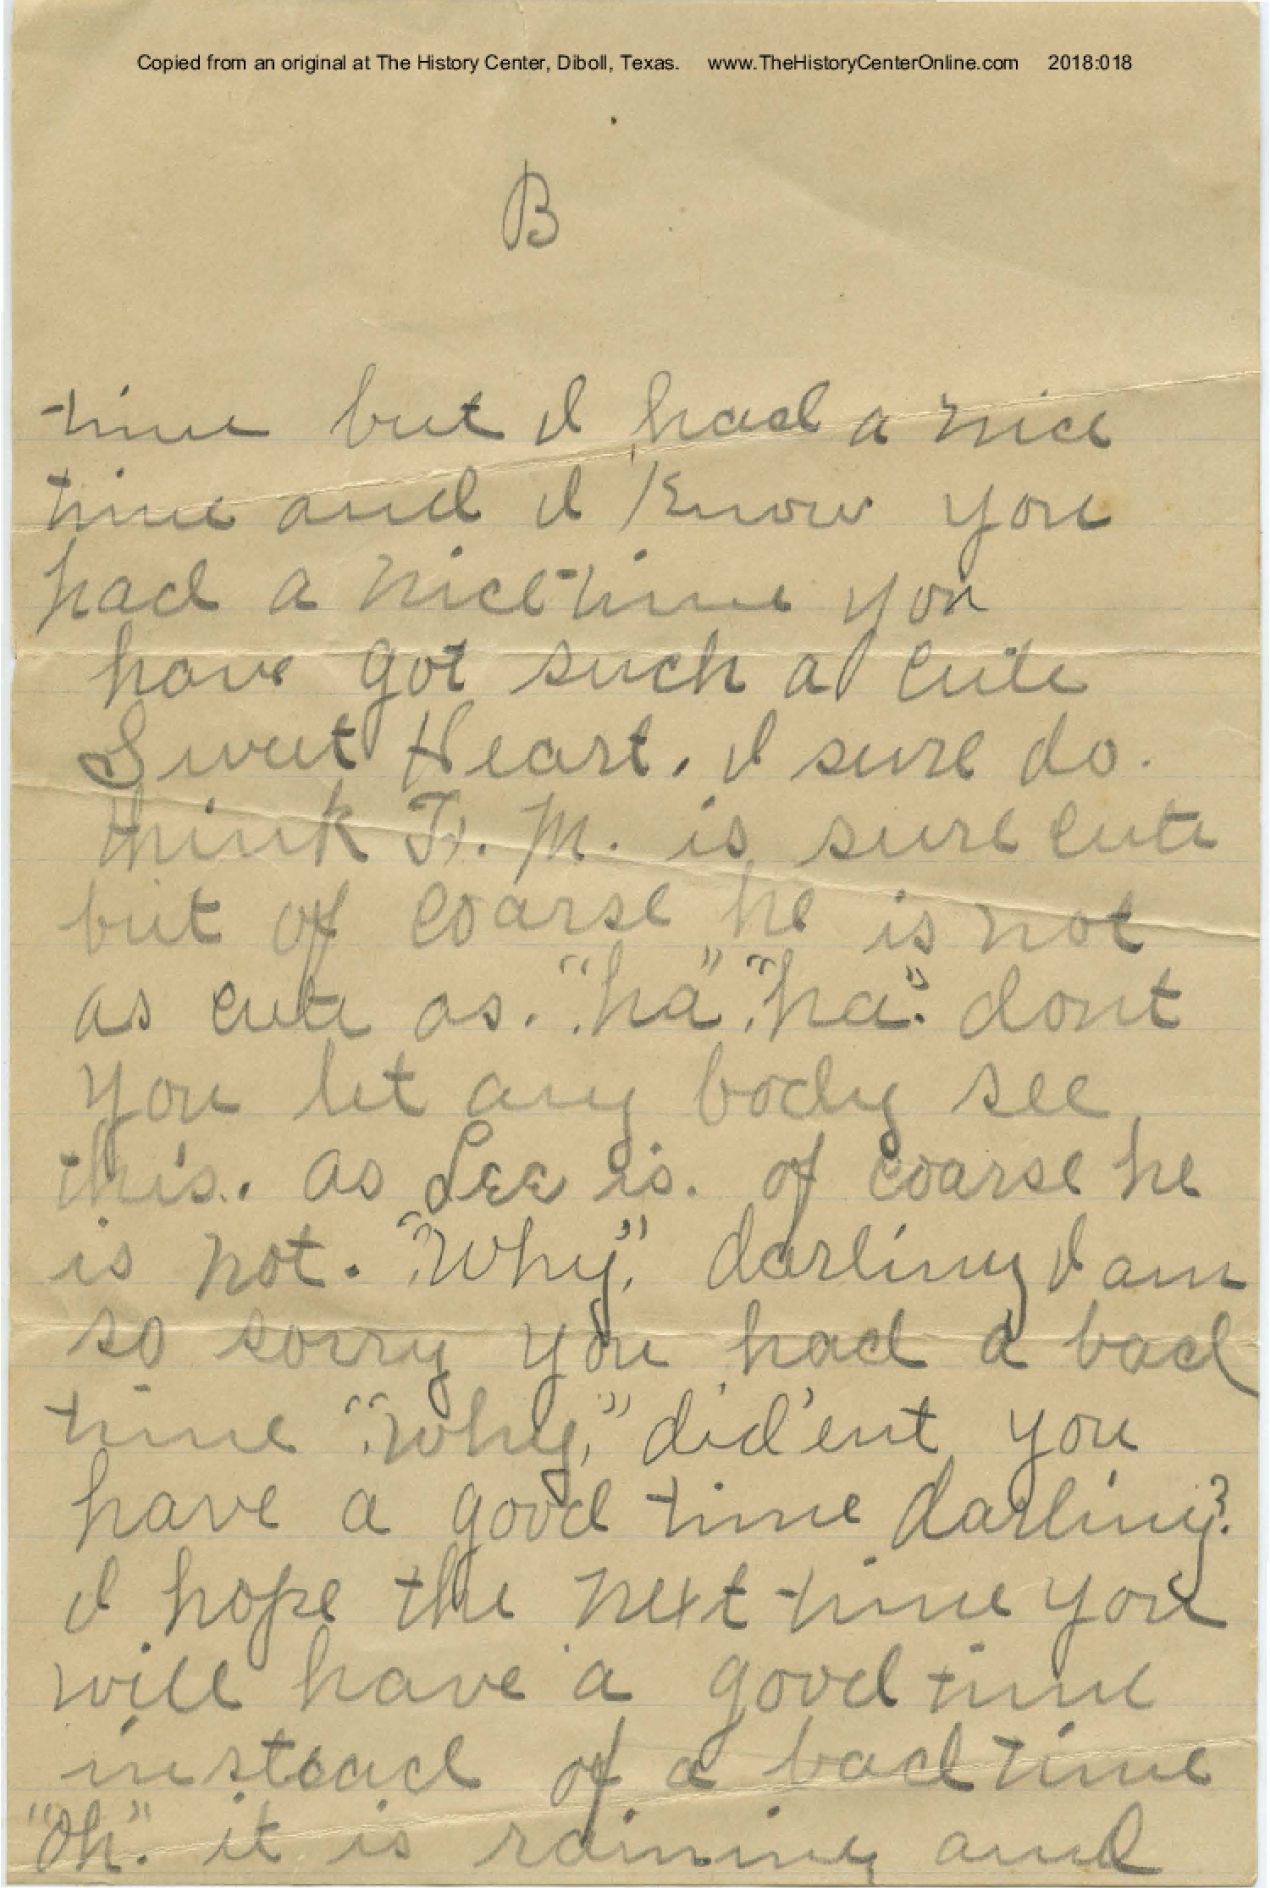 Copied from an original at The History Center, Diboll, Texas. www.TheHistoryCenterOnline.com 2018:018
B
time but I had a nice
time and I Know you
had a nice time you
have got such a cute
Sweet Heart. I sure do.
think F. M. is sure cute
but of coarse he is not
as cute as. "ha" "ha". dont
you let any body see
this. as Lee is. of coarse he
is not. "Why," darling I am
so sorry you had a bad
time "why," did'ent you
have a good time darling?
I hope the next time you
will have a good time
instead of a bad time
"Oh". it is raining and